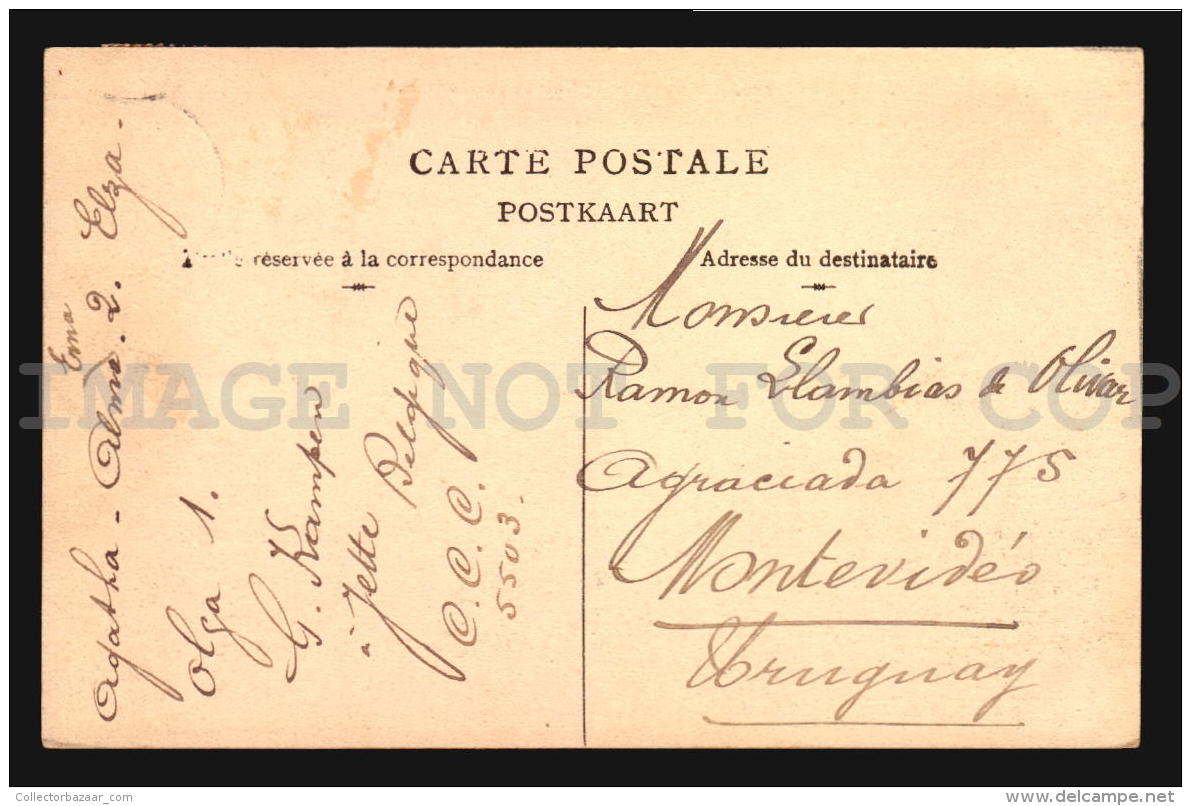 CARTE POSTALE
POSTKAART
réservée à la correspondance
Adresse du destinataire
Agatha - Alma. 2. Elza.
Ema
Olga 1.
G. Kampen
à Jette Belgique
C. C. C.
5503.
Monsieur
Ramon Llambias de Olivar
Agraciada 775
Montevidéo
Uruguay
IMAGE NOT FOR COP
CollectorBazaar.com
www.delcampe.net